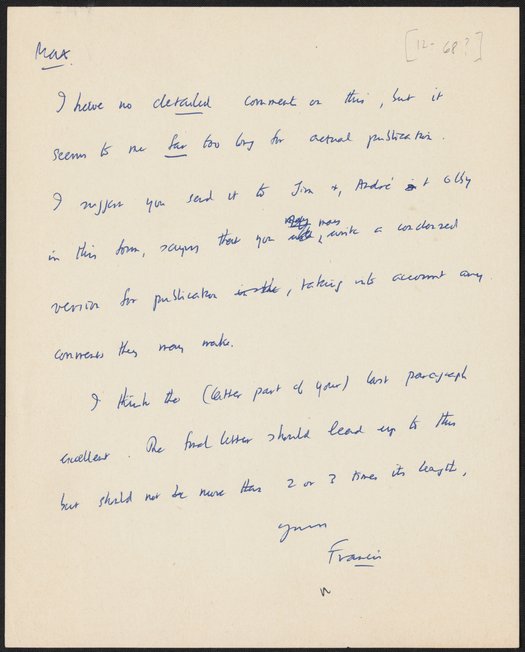 [12-68?]
Max.
I have no detailed comments on this, but it
seems to me far too long for actual publication.
I suggest you send it to Jim +, André + Olby
in this form, saying that you may write a condensed
version for publication in the, taking into account any
comments they may make.
I think the (latter part of your) last paragraph
excellent. The final letter should lead up to this
but should not be more than 2 or 3 times its length.
yours
Francis